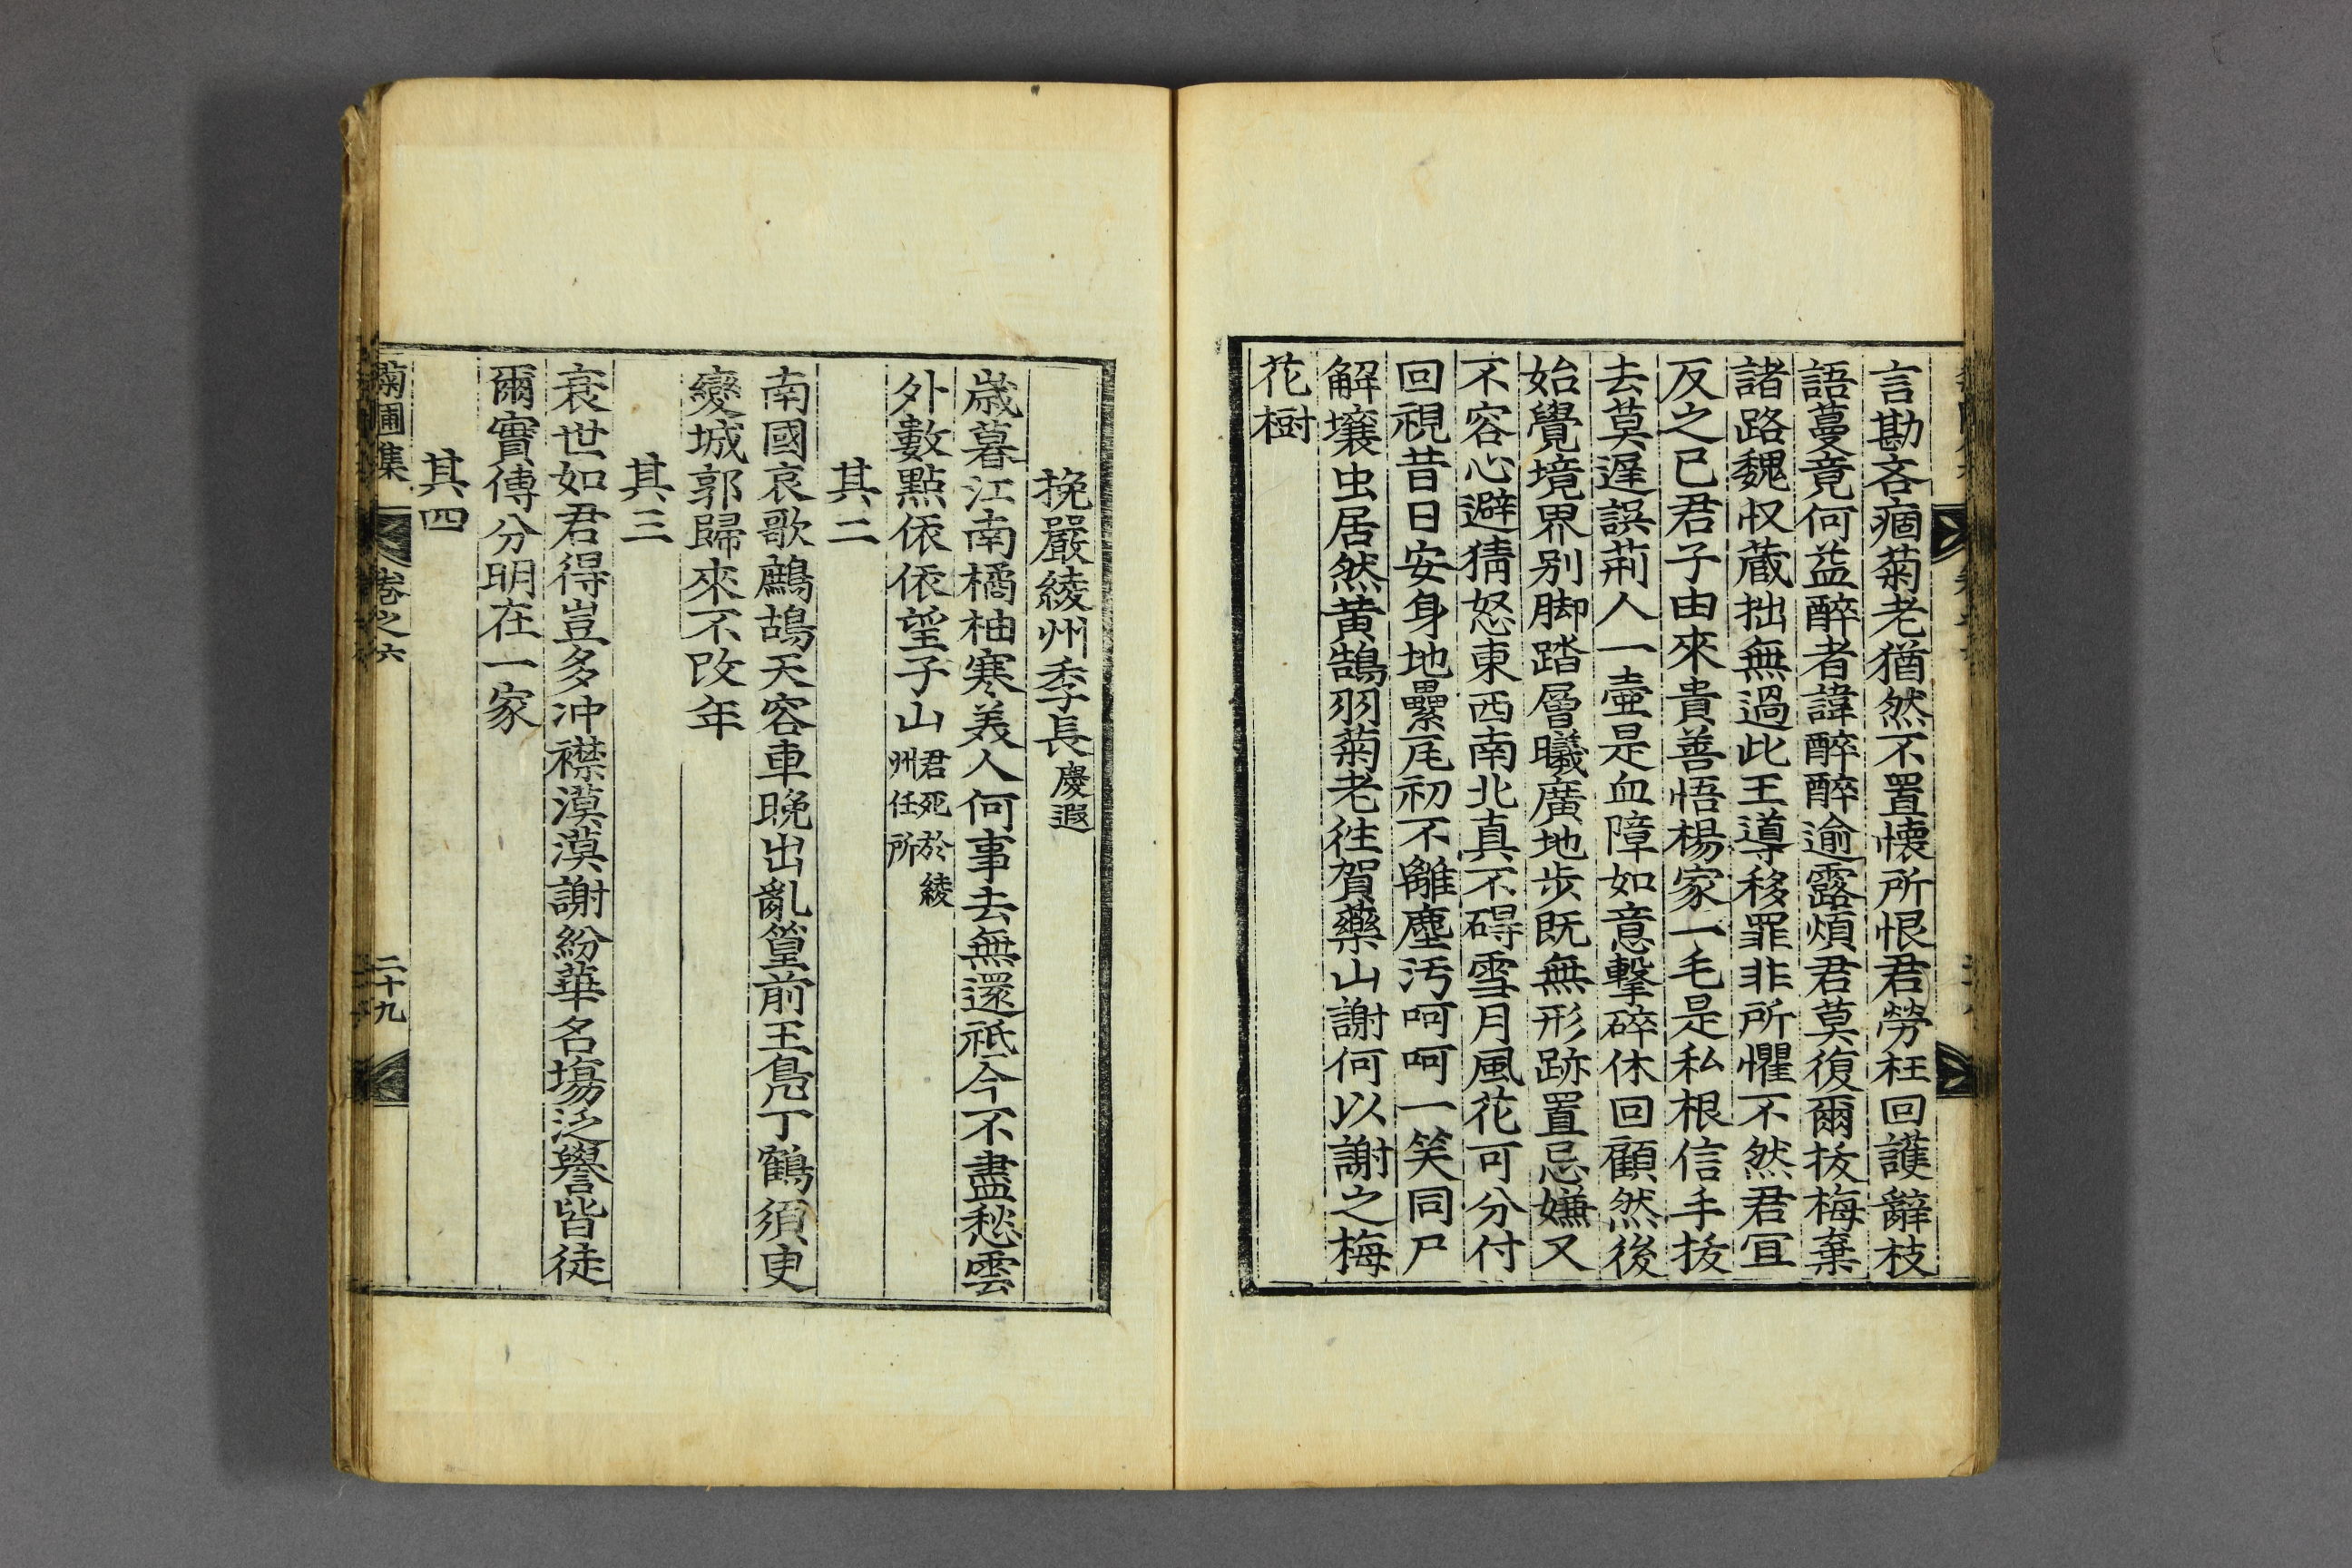 言勘吝痼菊老猶然不置懷所恨君勞枉回護辭枝
語蔓竟何益醉者諱醉醉逾露煩君莫復爾拔梅棄
諸路魏収蔵拙無過此王導移罪非所懼不然君冝
反之已君子由來貴善悟楊家一毛是私根信手拔
去莫遲誤荊人一壷是血障如意擊碎休回顧然後
始覺境界别脚踏層曦廣地步既無形跡置忌嫌又
不容心避猜怒東西南北真不碍雪月風花可分付
回視昔日安身地纍尾初不離塵汚呵呵一笑同尸
解壤虫居然黄鵠羽菊老徃賀藥山謝何以謝之梅
花樹
挽嚴綾州季長慶遐
歳暮江南橘柚寒美人何事去無還祇今不盡愁雲
外數點依依望子山君死於綾州任所
其二
南國哀歌鷓鴣天容車晚出亂篁前王鳧丁鶴須臾
變城郭歸來不改年
其三
衰世如君得豈多冲襟漠漠謝紛華名塲泛譽皆徒
爾實傳分明在一家
其四
菊圃集 卷之六 二十九